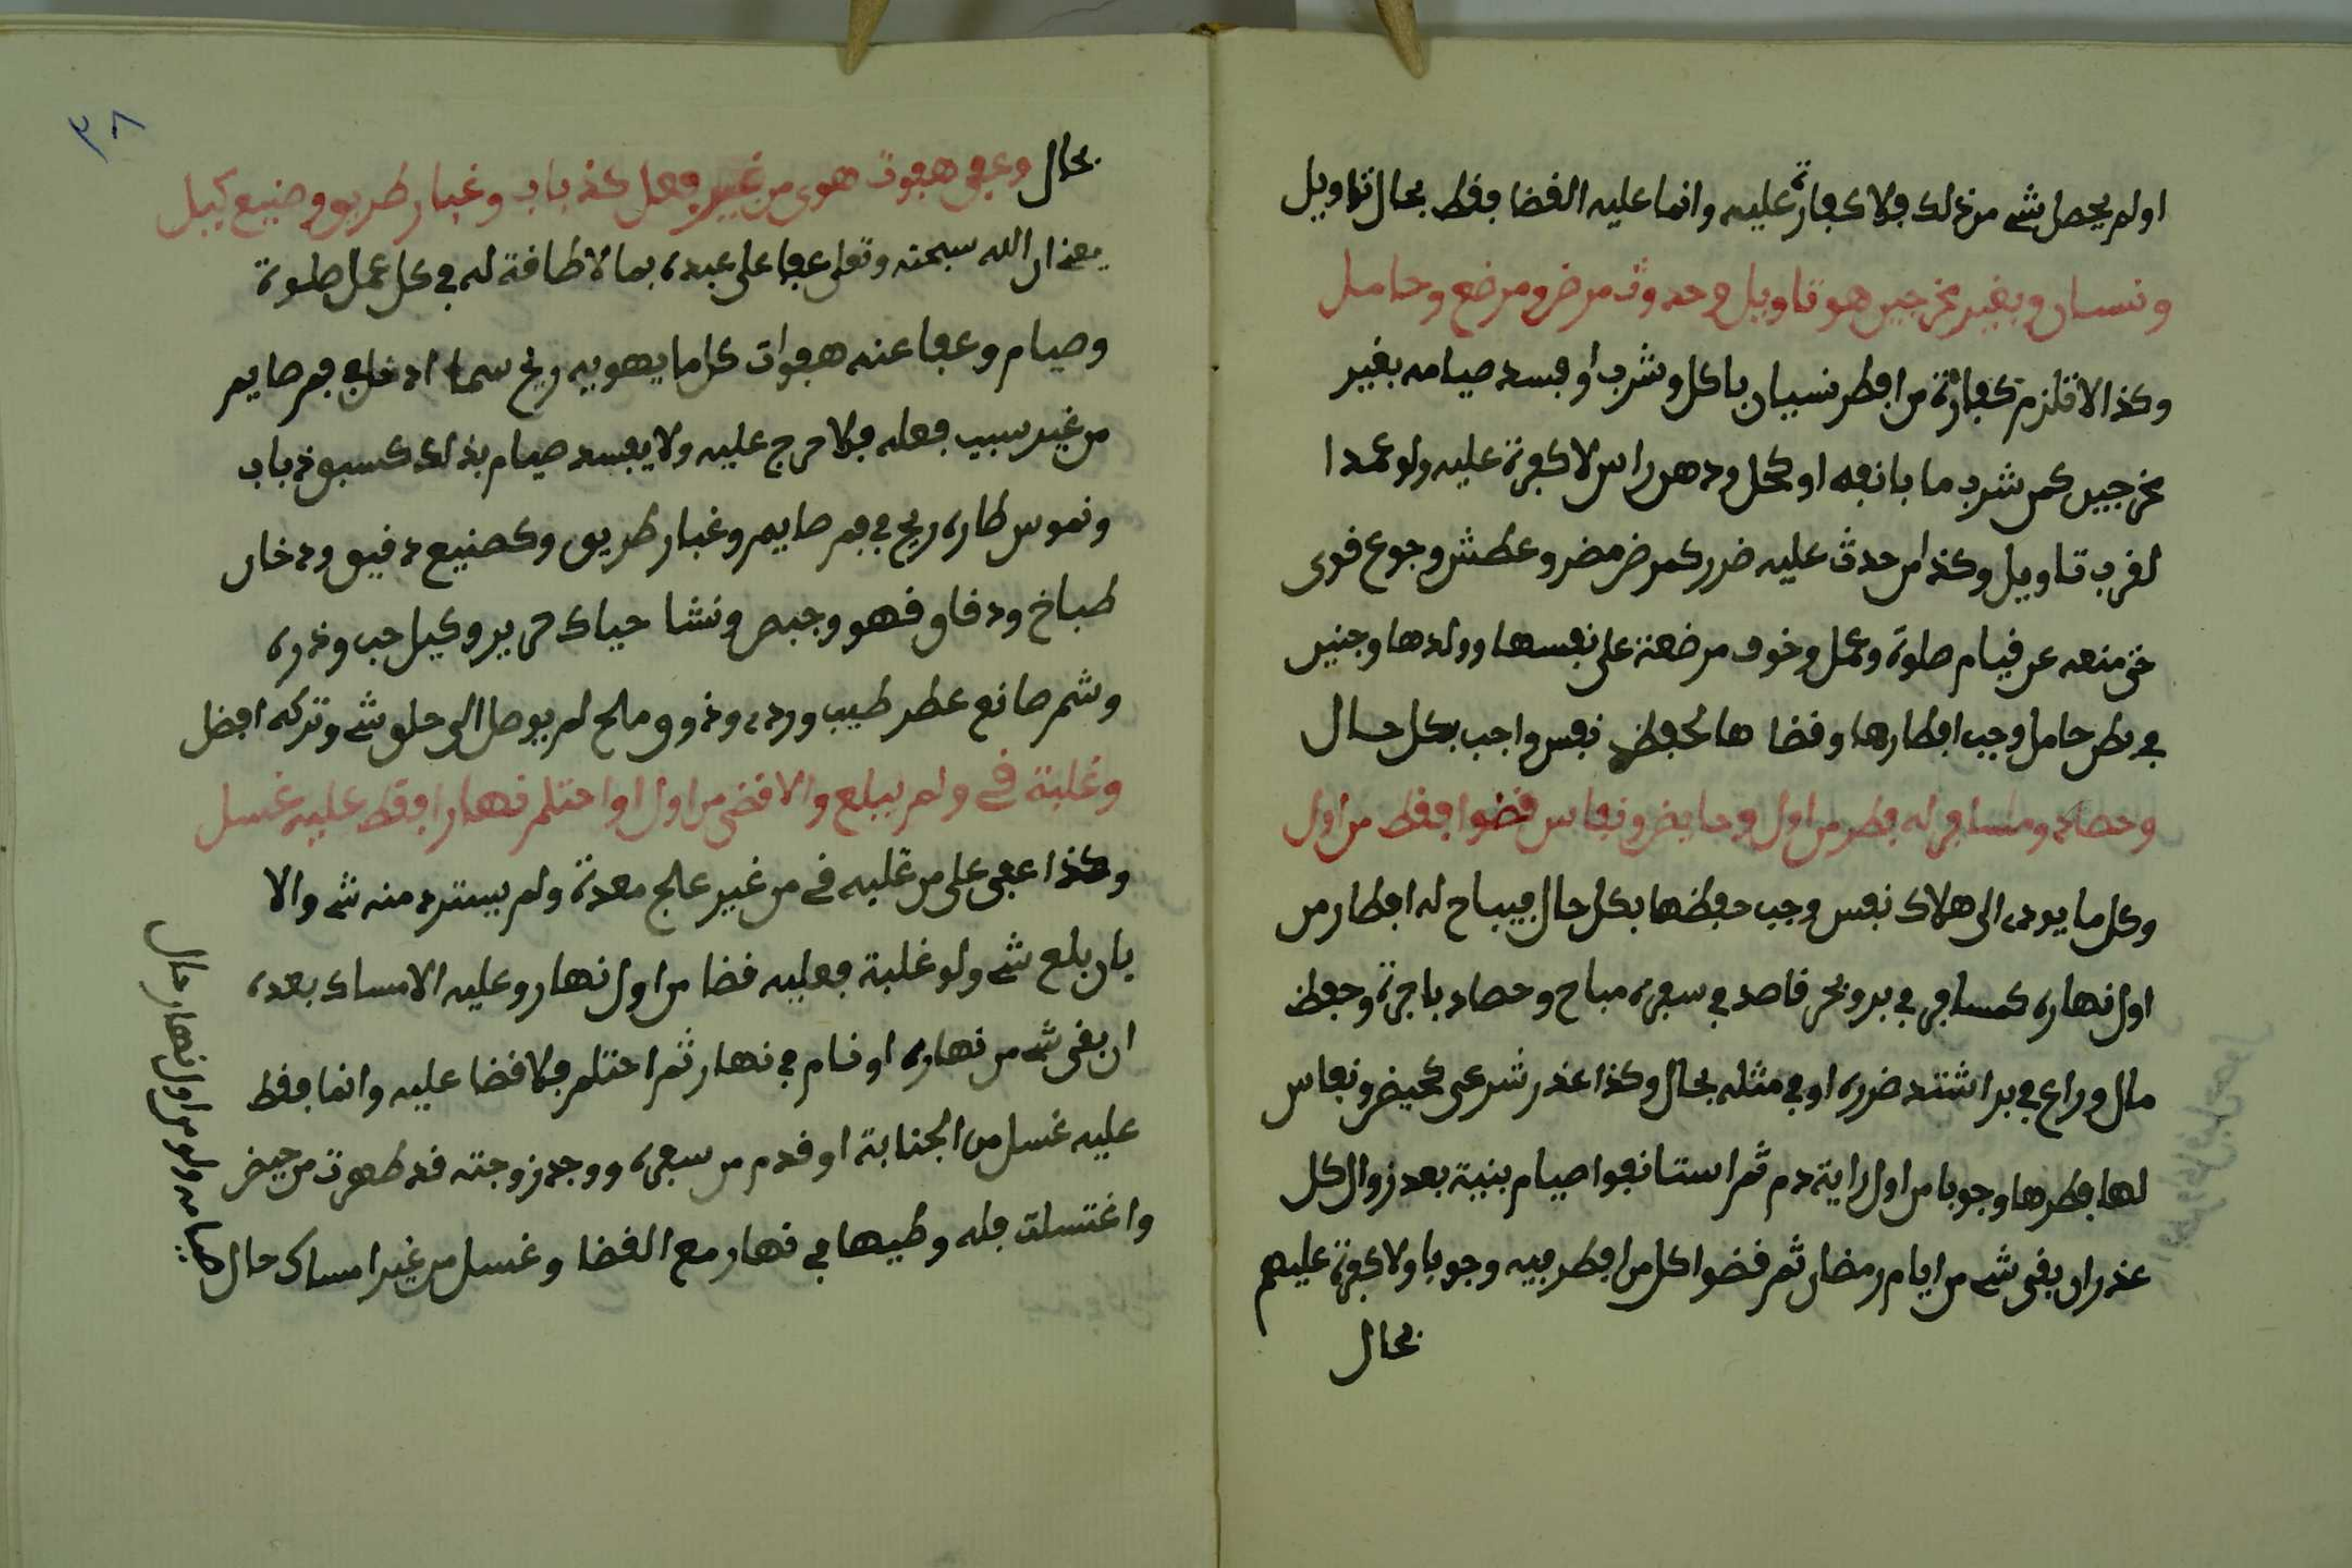 او لم يحصل شے من ذلك فلا كفارة عليه وانما عليه القضا فقط بحال تاويل
ونسيان وبغير مخرجين هو تاويل وحدوث مرض ومرضع وحامل
وكذا لا تلزم كفارة من افطر نسيان باكل وشرب او فسد صيامه بغير
مخرجين كمن شرب ما بانفه او كحل ودهن راس لا كفرة عليه ولو عمدا
لقرب تاويل وكذا من حدث عليه ضرر كمرض مضر وعطش وجوع قوى
حتى منعه عن قيام صلوة وعمل وخوف مرضعة على نفسها وولدها وجنين
في بطن حامل وجب افطارها وقضا ها لحفظ نفس واجب بكل حال
وحصاد ومسافر له فطر من اول وحايض ونفاس قضوا فقط من اول
وكل ما يودى الى هلاك نفس وجب حفظها بكل حال فيباح له افطار من
اول نهاره كمسافر في بر وبحر قاصد في سفره مباح وحصاد باجرة وحفظ
مال وراع في بر اشتد ضرره او في مثله بحال وكذا عذر شرعى كحيض ونفاس
لها فطرها وجوبا من اول راية دم ثم استانفوا صيام بنية بعد زوال كل
عذر ان بقى شے من ايام رمضان ثم قضوا كل من افطر فيه وجوبا ولا كفرة عليهم
بحال
٣٨
بحال وعفى هفوت هوى من غير فعل كذباب وغبار طريق وصنيع كيل
يعنى ان الله سبحنه وتعلى عفا على عبده بما لا طاقة له في كل عمل صلوة
وصيام وعفا عنه هفوات كل ما يهويه ريح سما ادخله فم صايم
من غير سبب فعله فلا حرج عليه ولا يفسد صيام بذلك كسبق ذباب
ونموس طاره ريح في فم صايم وغبار طريق وكصنيع دقيق ودخان
طباخ ودقاق قهو وجبص ونشا حياك حرير وكيل حب وذره
وشم صانع عطر طيب ورده وذوق ملح لم يوصل الى حلق شے وتركه افضل
وغلبة قے ولم يبلع والا قضى من اول او احتلم نهارا فقط عليه غسل
وكذا عفى على من غلبه قے من غير علج معدة ولم يسترد منه شے والا
بان بلع شے ولو غلبة فعليه قضا من اول نهار وعليه الامساك بعده
ان بقى شے من نهاره او نام في نهار ثم احتلم فلا قضا عليه وانما فقط
عليه غسل من الجنابة او قدم من سفره ووجد زوجته قد طهرت من حيض
واغتسلت فله وطيها في نهار مع القضا وغسل من غير امساك حال
صيامه ولو من اول نهار حال